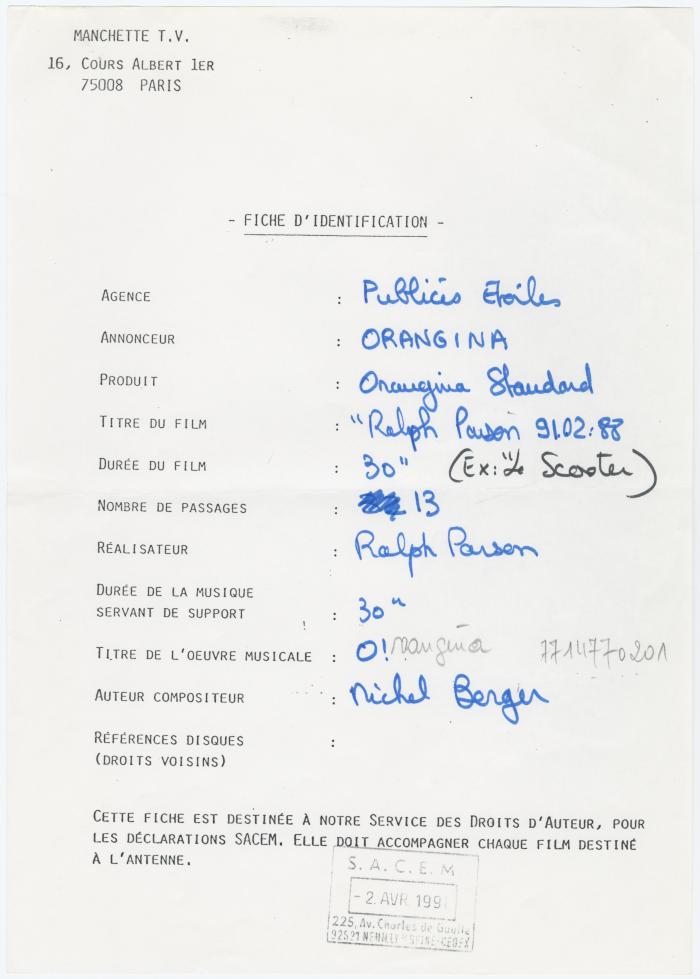 MANCHETTE T.V.
16, COURS ALBERT 1ER
75008 PARIS
- FICHE D'IDENTIFICATION -
AGENCE : Publicis Etoiles
ANNONCEUR : ORANGINA
PRODUIT : Orangina Standard
TITRE DU FILM : "Ralph Parson 91.02.88
DURÉE DU FILM : 30" (Ex: "Le Scooter)
NOMBRE DE PASSAGES : 13
RÉALISATEUR : Ralph Parson
DURÉE DE LA MUSIQUE
SERVANT DE SUPPORT : 30"
TITRE DE L'OEUVRE MUSICALE : O! rangina 7714770201
AUTEUR COMPOSITEUR : Michel Berger
RÉFÉRENCES DISQUES :
(DROITS VOISINS)
CETTE FICHE EST DESTINÉE À NOTRE SERVICE DES DROITS D'AUTEUR, POUR
LES DÉCLARATIONS SACEM. ELLE DOIT ACCOMPAGNER CHAQUE FILM DESTINÉ
À L'ANTENNE.
S. A. C. E. M
- 2. AVR 199
225, Av. Charles de Gaulle
92521 NEUILLY S/SEINE-CEDEX